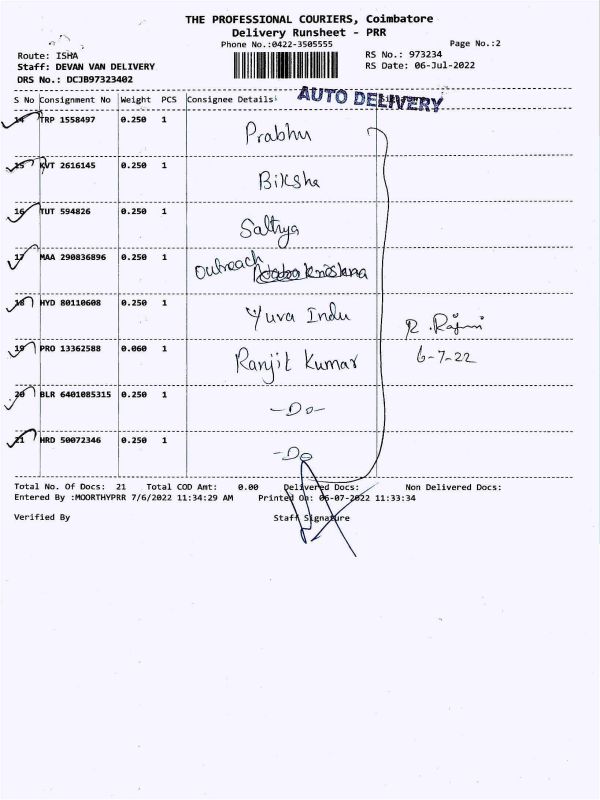 THE PROFESSIONAL COURIERS, Coimbatore
Delivery Runsheet - PRR
Phone No.:0422-3505555
Page No.:2
Route: ISHA
RS No.: 973234
Staff: DEVAN VAN DELIVERY
RS Date: 06-Jul-2022
DRS No.: DCJB97323402
S No Consignment No Weight PCS Consignee Details
AUTO DELIVERY
14 TRP 1558497 0.250 1 Prabhu
15 KVT 2616145 0.250 1 Biksha
16 TUT 594826 0.250 1 Sathya
17 MAA 290836896 0.250 1 Outreach
18 HYD 80110608 0.250 1 Yuva Indu
R. Rajini
19 PRO 13362588 0.060 1 Ranjit Kumar
6-7-22
20 BLR 6401085315 0.250 1 -Do-
21 HRD 50072346 0.250 1 -Do
Total No. Of Docs: 21 Total COD Amt: 0.00 Delivered Docs: Non Delivered Docs:
Entered By :MOORTHYPRR 7/6/2022 11:34:29 AM Printed On: 06-07-2022 11:33:34
Verified By Staff Signature